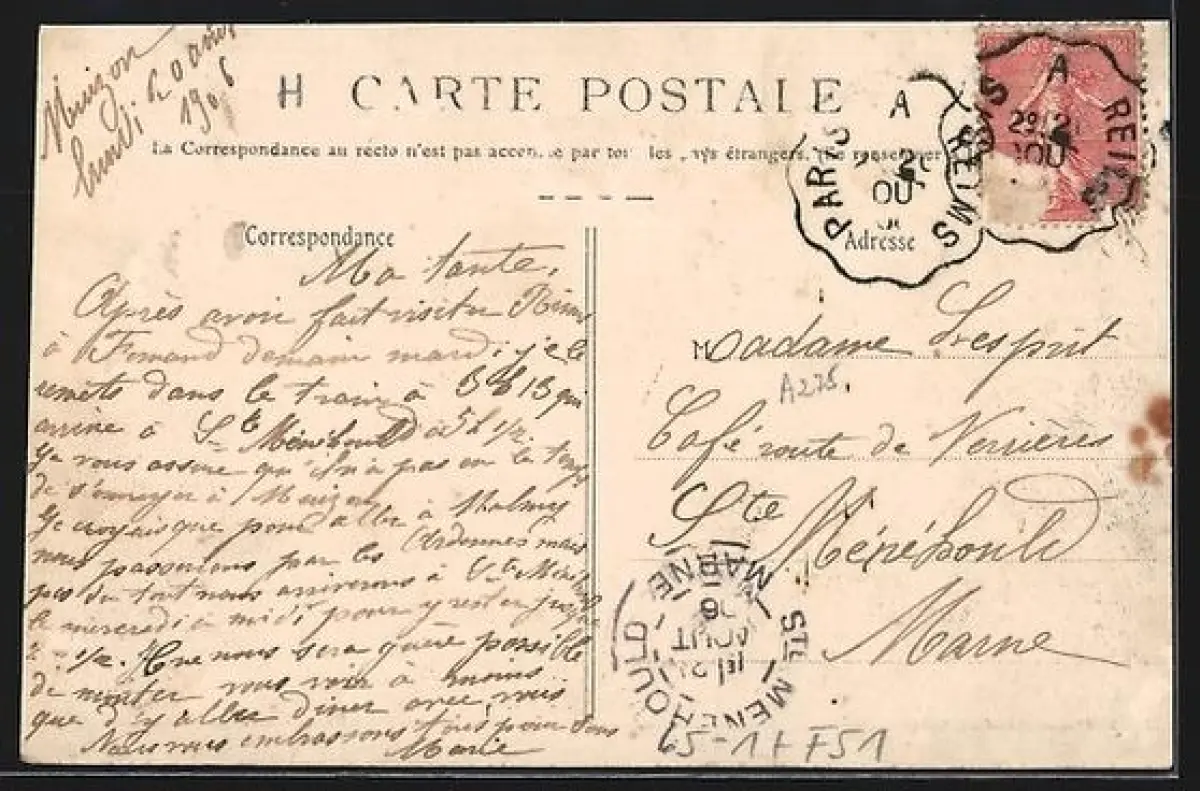 Muizon
lundi 20 aout
1906
CARTE POSTALE
La Correspondance au recto n'est pas acceptée par tous les pays étrangers. (Se renseigner
Correspondance
Adresse
PARIS A REIMS
A REIMS
Ma tante,
Après avoir fait visiter Reims
à Fernand demain mardi, je le
remets dans le train à 3h13 qui
arrive à Ste Ménéhould à 5h 1/2
Je vous assure qu'il n'a pas eu le temps
de s'ennuyer à Muizon
Je croyais que pour aller à Malmy
nous passerions par les Ardennes mais
pas du tout nous arriverons à Ste Ménéh
le mercredi à midi pour y rester jusqu'à
2h 1/2. Il ne nous sera guère possible
de monter vous voir à moins
que d'y aller diner avec vous
Nous vous embrassons tous pour tous
Marie
Madame Lesprit
A275.
Café route de Verrières
Ste Ménéhould
Marne
STE MENEHOULD MARNE
AOUT
06
65-1++F51